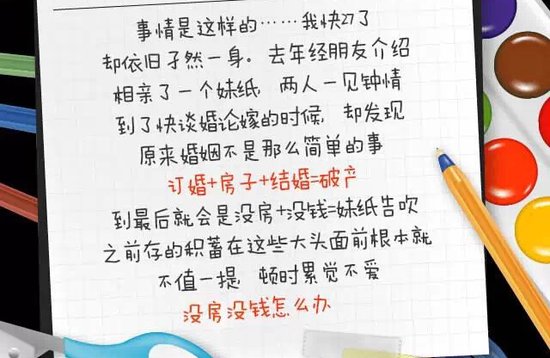 事情是这样的……我快27了
却依旧孑然一身。去年经朋友介绍
相亲了一个妹纸，两人一见钟情
到了快谈婚论嫁的时候，却发现
原来婚姻不是那么简单的事
订婚+房子+结婚=破产
到最后就会是没房+没钱=妹纸告吹
之前存的积蓄在这些大头面前根本就
不值一提，顿时累觉不爱
没房没钱怎么办